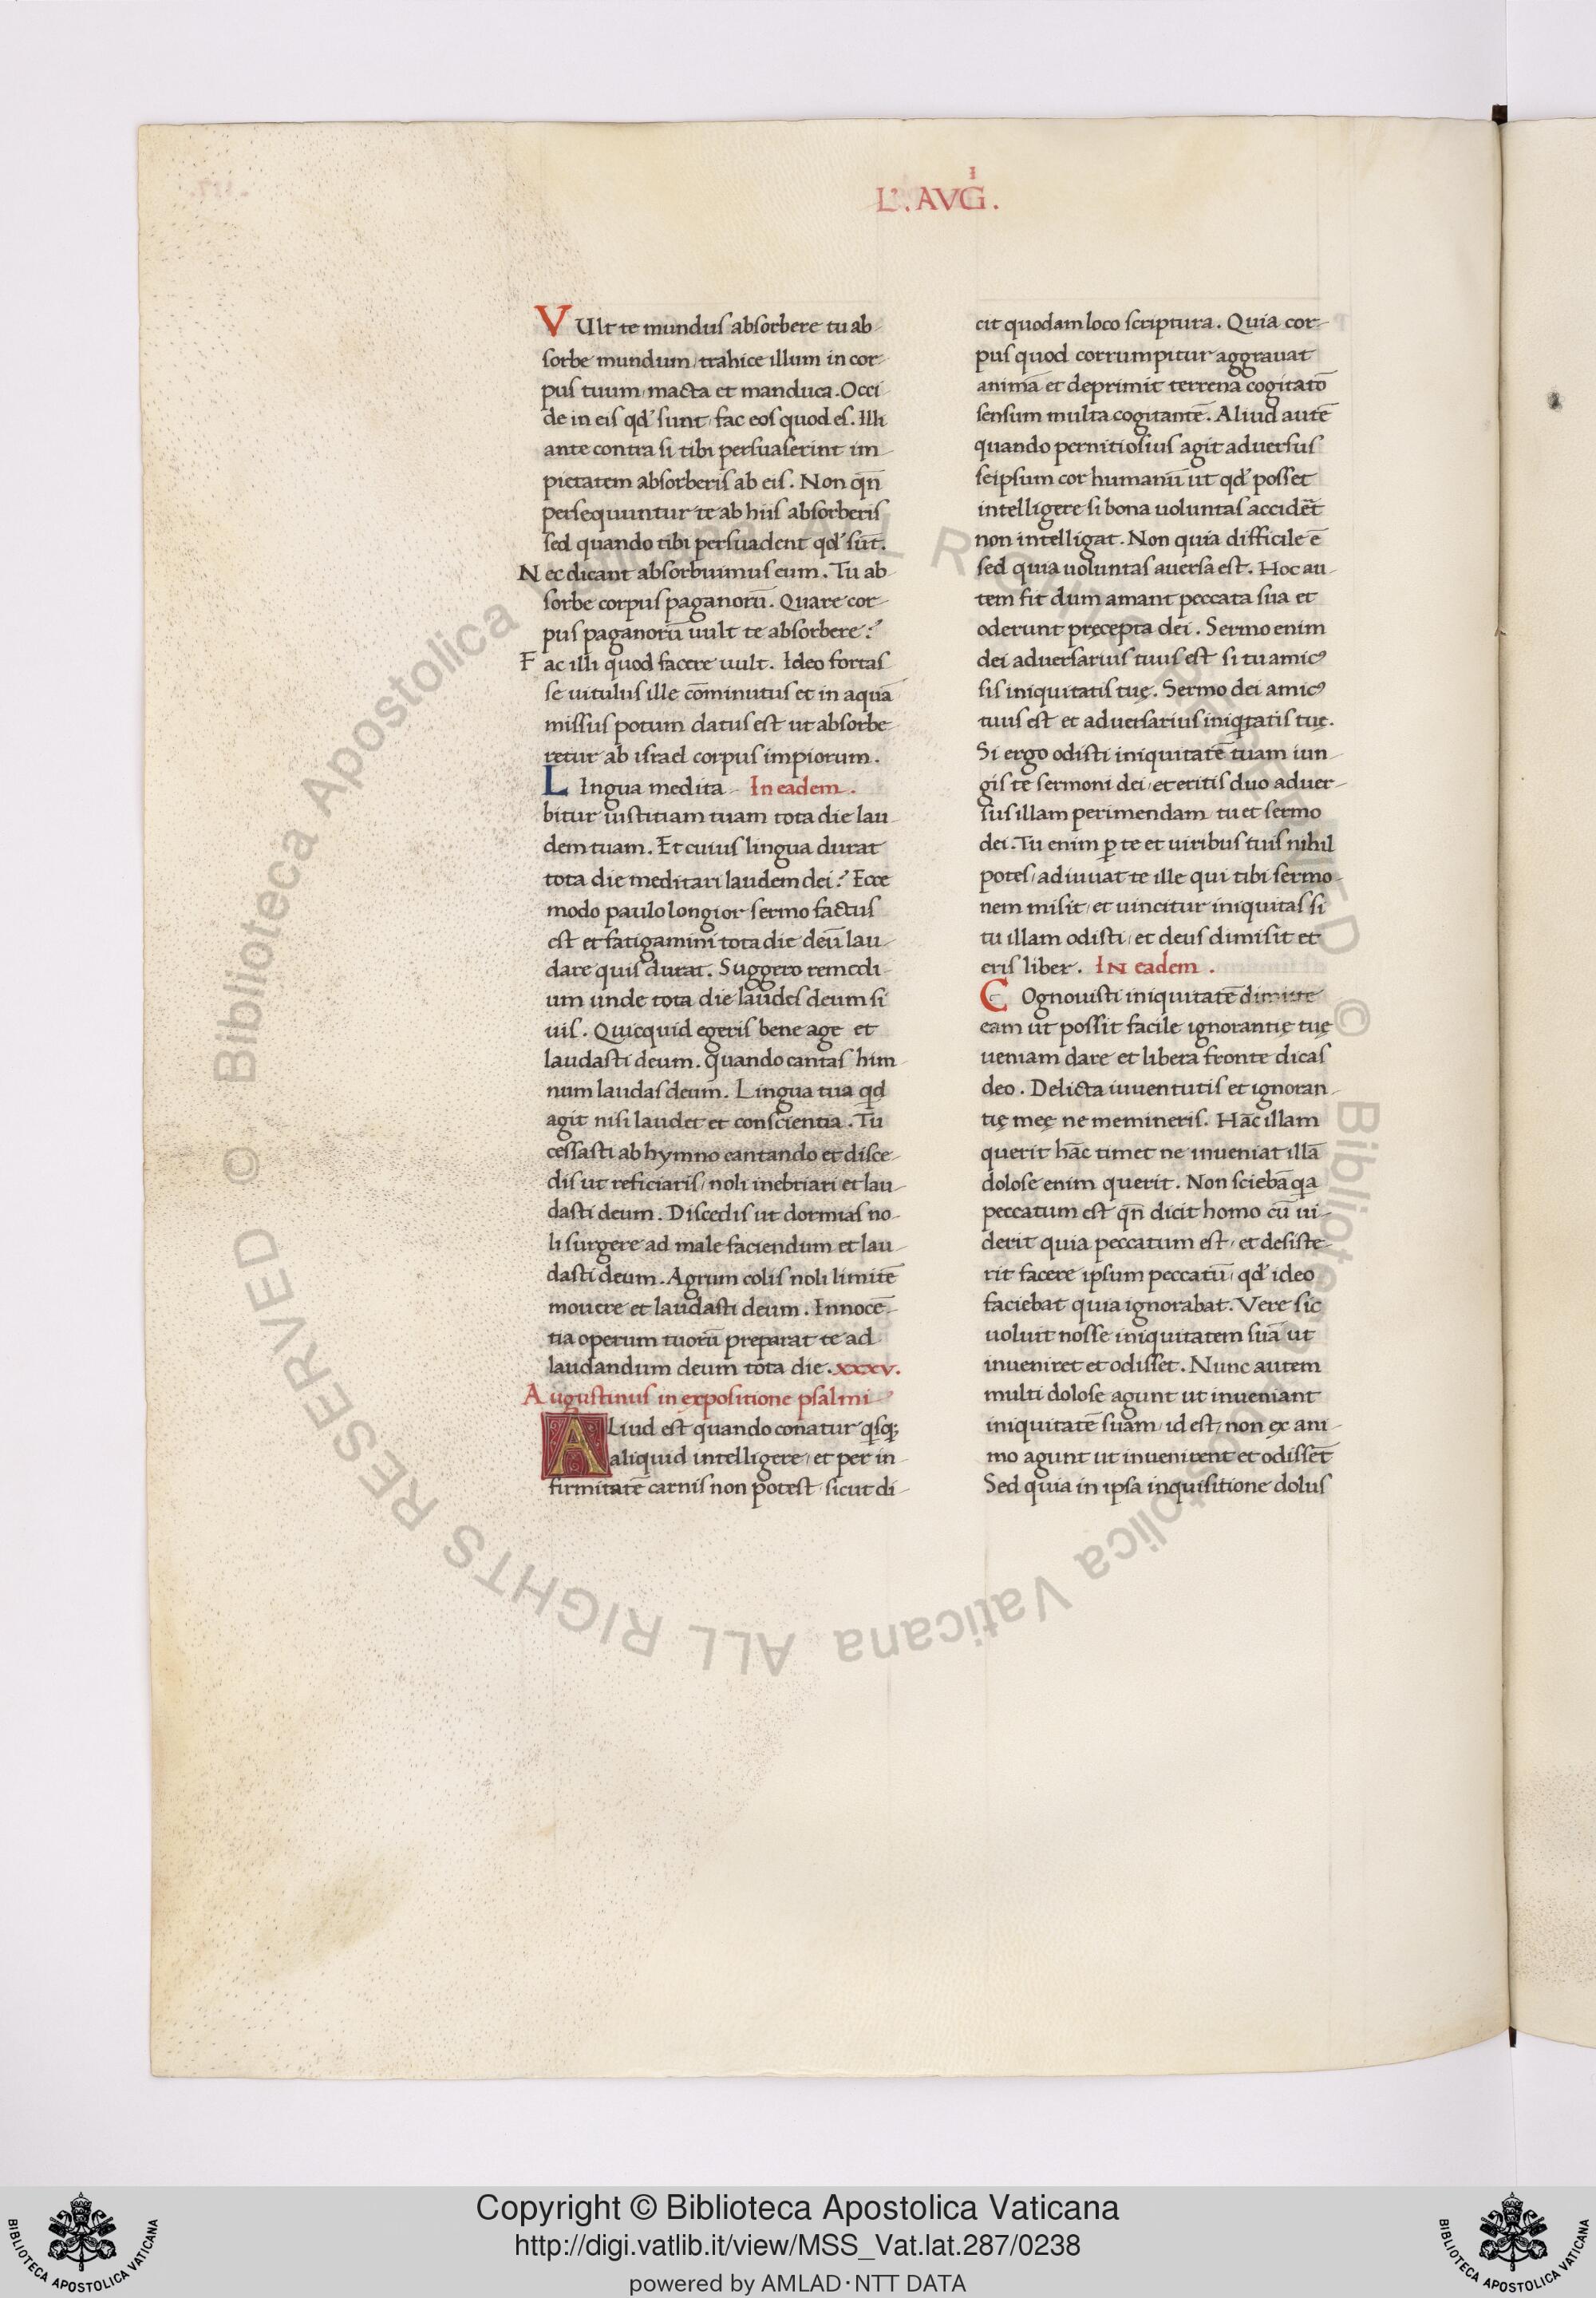 L'. AVG̅.
VUlt te mundus absorbere tu ab-
sorbe mundum, trahice illum in cor-
pus tuum, macta et manduca. Occi-
de in eis qd' sunt, fac eos quod es. Illi
ante contra si tibi persuaserint im-
pietatem absorberis ab eis. Non qn̄
persequuntur te ab hiis absorberis
sed quando tibi persuadent qd' sūt.
Nec dicant absorbuimus eum. Tu ab-
sorbe corpus paganorū. Quare cor-
pus paganorū uult te absorbere?
Fac illi quod facere uult. Ideo fortas-
se uitulus ille cōminutus et in aquā
missus potum datus est ut absorbe-
retur ab israel corpus impiorum.
LIngua medita- In eadem.
bitur iustitiam tuam tota die lau-
dem tuam. Et cuius lingua durat
tota die meditari laudem dei? Ecce
modo paulo longior sermo factus
est et fatigamini tota die deū lau-
dare quis durat. Suggero remedi-
um unde tota die laudes deum si
uis. Quicquid egeris bene age et
laudasti deum. quando cantas him-
num laudas deum. Lingua tua qd
agit nisi laudet et conscientia. Tu
cessasti ab hymno cantando et disce-
dis ut reficiaris, noli inebriari et lau-
dasti deum. Discedis ut dormias no-
li surgere ad male faciendum et lau-
dasti deum. Agrum colis noli limitē
mouere et laudasti deum. Innocē-
tia operum tuorū preparat te ad
laudandum deum tota die. xxxv.
Augustinus in expositione psalmi
ALiud est quando conatur qsq;
aliquid intelligere, et per in-
firmitatē carnis non potest, sicut di-
cit quodam loco scriptura. Quia cor-
pus quod corrumpitur aggrauat
animā et deprimit terrena cogitatō
sensum multa cogitantē. Aliud autē
quando pernitiosius agit aduersus
seipsum cor humanū ut qd' posset
intelligere si bona uoluntas accidēt
non intelligat. Non quia difficile ē
sed quia uoluntas auersa est. Hoc au-
tem fit dum amant peccata sua et
oderunt pręcepta dei. Sermo enim
dei aduersarius tuus est si tu amicꝰ
sis iniquitatis tuę. Sermo dei amicꝰ
tuus est et aduersarius iniqtatis tuę.
Si ergo odisti iniquitatē tuam iun-
gis te sermoni dei, et eritis duo aduer-
sus illam perimendam tu et sermo
dei. Tu enim ꝑ te et uiribus tuis nihil
potes, adiuuat te ille qui tibi sermo-
nem misit, et uincitur iniquitas si
tu illam odisti, et deus dimisit et
eris liber. IN eadem.
COgnouisti iniquitatē dimitte
eam ut possit facile ignorantię tuę
ueniam dare et libera fronte dicas
deo. Delicta iuuentutis et ignoran-
tię meę ne memineris. Hāc illam
querit hāc timet ne inueniat illā
dolose enim querit. Non sciebā qa
peccatum est qn̄ dicit homo cū ui-
derit quia peccatum est, et desiste-
rit facere ipsum peccatū, qd' ideo
faciebat quia ignorabat. Vere sic
uoluit nosse iniquitatem suā ut
inueniret et odisset. Nunc autem
multi dolose agunt ut inueniant
iniquitatē suam, id est, non ex ani-
mo agunt ut inuenirent et odissēt
Sed quia in ipsa inquisitione dolus
Copyright © Biblioteca Apostolica Vaticana
http://digi.vatlib.it/view/MSS_Vat.lat.287/0238
powered by AMLAD·NTT DATA
BIBLIOTECA APOSTOLICA VATICANA
BIBLIOTECA APOSTOLICA VATICANA
© Biblioteca Apostolica Vaticana ALL RIGHTS RESERVED
© Biblioteca Apostolica Vaticana ALL RIGHTS RESERVED